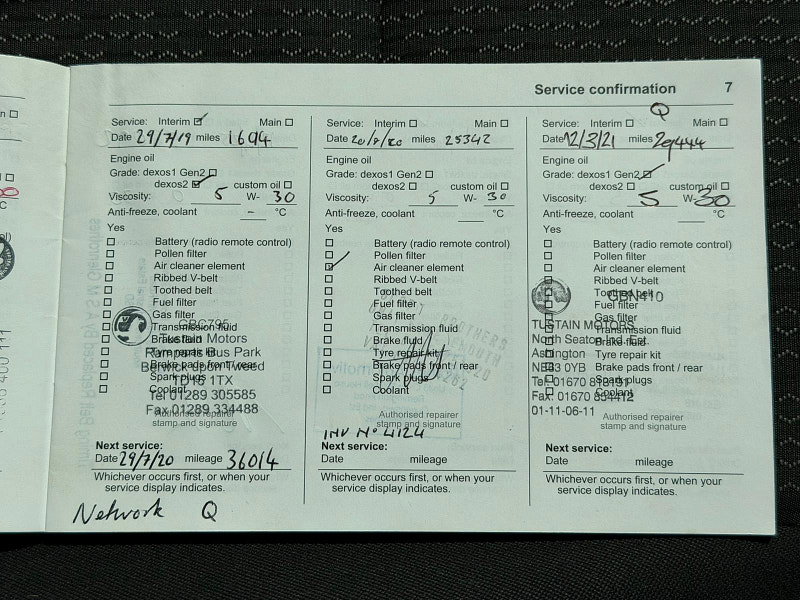 Service confirmation 7
Service: Interim Main
Date 29/7/19 miles 1694
Engine oil
Grade: dexos1 Gen2
dexos2 custom oil
Viscosity: 5 W- 30
Anti-freeze, coolant - °C
Yes
Battery (radio remote control)
Pollen filter
Air cleaner element
Ribbed V-belt
Toothed belt
Fuel filter
Gas filter
Transmission fluid
Brake fluid
Tyre repair kit
Brake pads front / rear
Spark plugs
Coolant
CBC795
Tustain Motors
Ramparts Bus Park
Berwick upon Tweed
TD15 1TX
Tel 01289 305585
Fax 01289 334488
Authorised repairer
stamp and signature
Next service:
Date 29/7/20 mileage 36014
Whichever occurs first, or when your
service display indicates.
Network Q
Service: Interim Main
Date 20/8/20 miles 25342
Engine oil
Grade: dexos1 Gen2
dexos2 custom oil
Viscosity: 5 W- 30
Anti-freeze, coolant °C
Yes
Battery (radio remote control)
Pollen filter
Air cleaner element
Ribbed V-belt
Toothed belt
Fuel filter
Gas filter
Transmission fluid
Brake fluid
Tyre repair kit
Brake pads front / rear
Spark plugs
Coolant
BROTHERS
Authorised repairer
stamp and signature
INV No 4124
Next service:
Date mileage
Whichever occurs first, or when your
service display indicates.
Q
Service: Interim Main
Date 12/3/21 miles 29444
Engine oil
Grade: dexos1 Gen2
dexos2 custom oil
Viscosity: 5 W- 30
Anti-freeze, coolant °C
Yes
Battery (radio remote control)
Pollen filter
Air cleaner element
Ribbed V-belt
Toothed belt
Fuel filter
Gas filter
Transmission fluid
Brake fluid
Tyre repair kit
Brake pads front / rear
Spark plugs
Coolant
GBN410
TUSTAIN MOTORS
North Seaton Ind. Est
Ashington
NE63 0YB
Fax 01670 854412
01-11-06-11
Authorised repairer
stamp and signature
Next service:
Date mileage
Whichever occurs first, or when your
service display indicates.